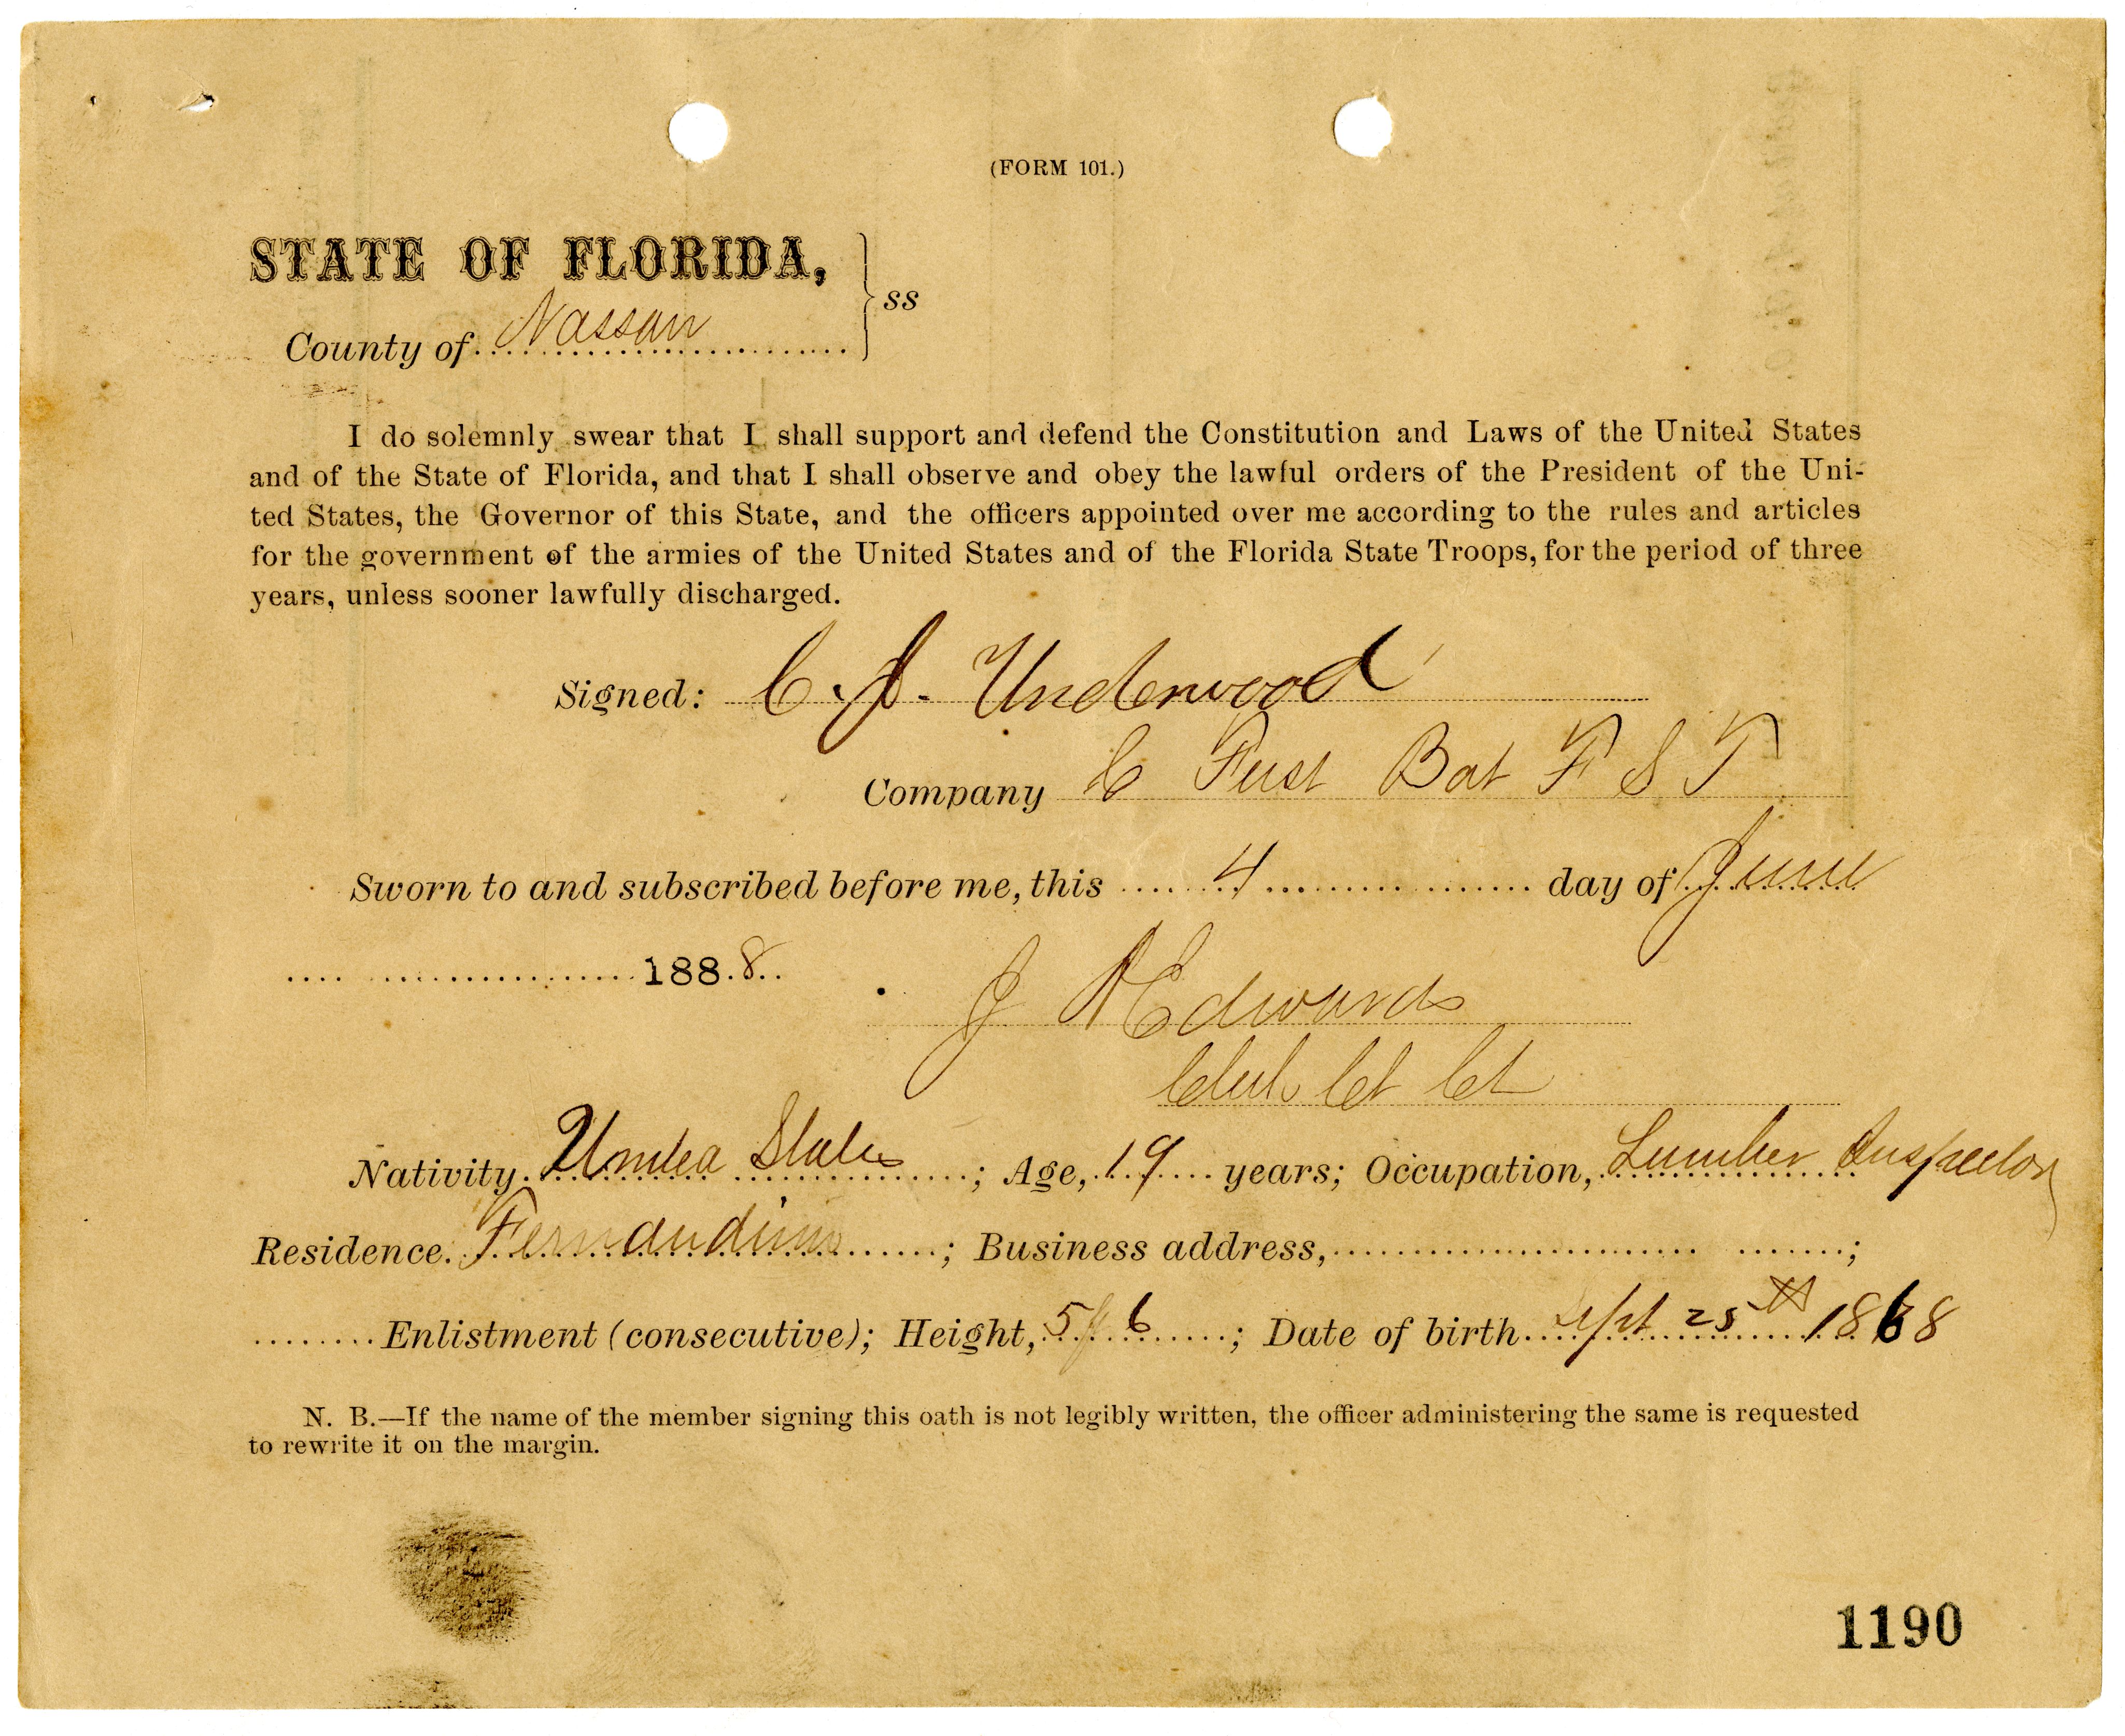 (FORM 101.)
STATE OF FLORIDA,
ss
County of Nassau
I do solemnly swear that I shall support and defend the Constitution and Laws of the United States
and of the State of Florida, and that I shall observe and obey the lawful orders of the President of the Uni-
ted States, the Governor of this State, and the officers appointed over me according to the rules and articles
for the government of the armies of the United States and of the Florida State Troops, for the period of three
years, unless sooner lawfully discharged.
Signed: C. J. Underwood
Company C First Bat F S T
Sworn to and subscribed before me, this 4 day of June
1888
J A Edwards
Clerk Ct Ct
Nativity United States; Age, 19 years; Occupation, Lumber Inspector
Residence Fernandina; Business address,;
Enlistment (consecutive); Height, 5 f 6; Date of birth Sept 25th 1868
N. B.—If the name of the member signing this oath is not legibly written, the officer administering the same is requested
to rewrite it on the margin.
1190